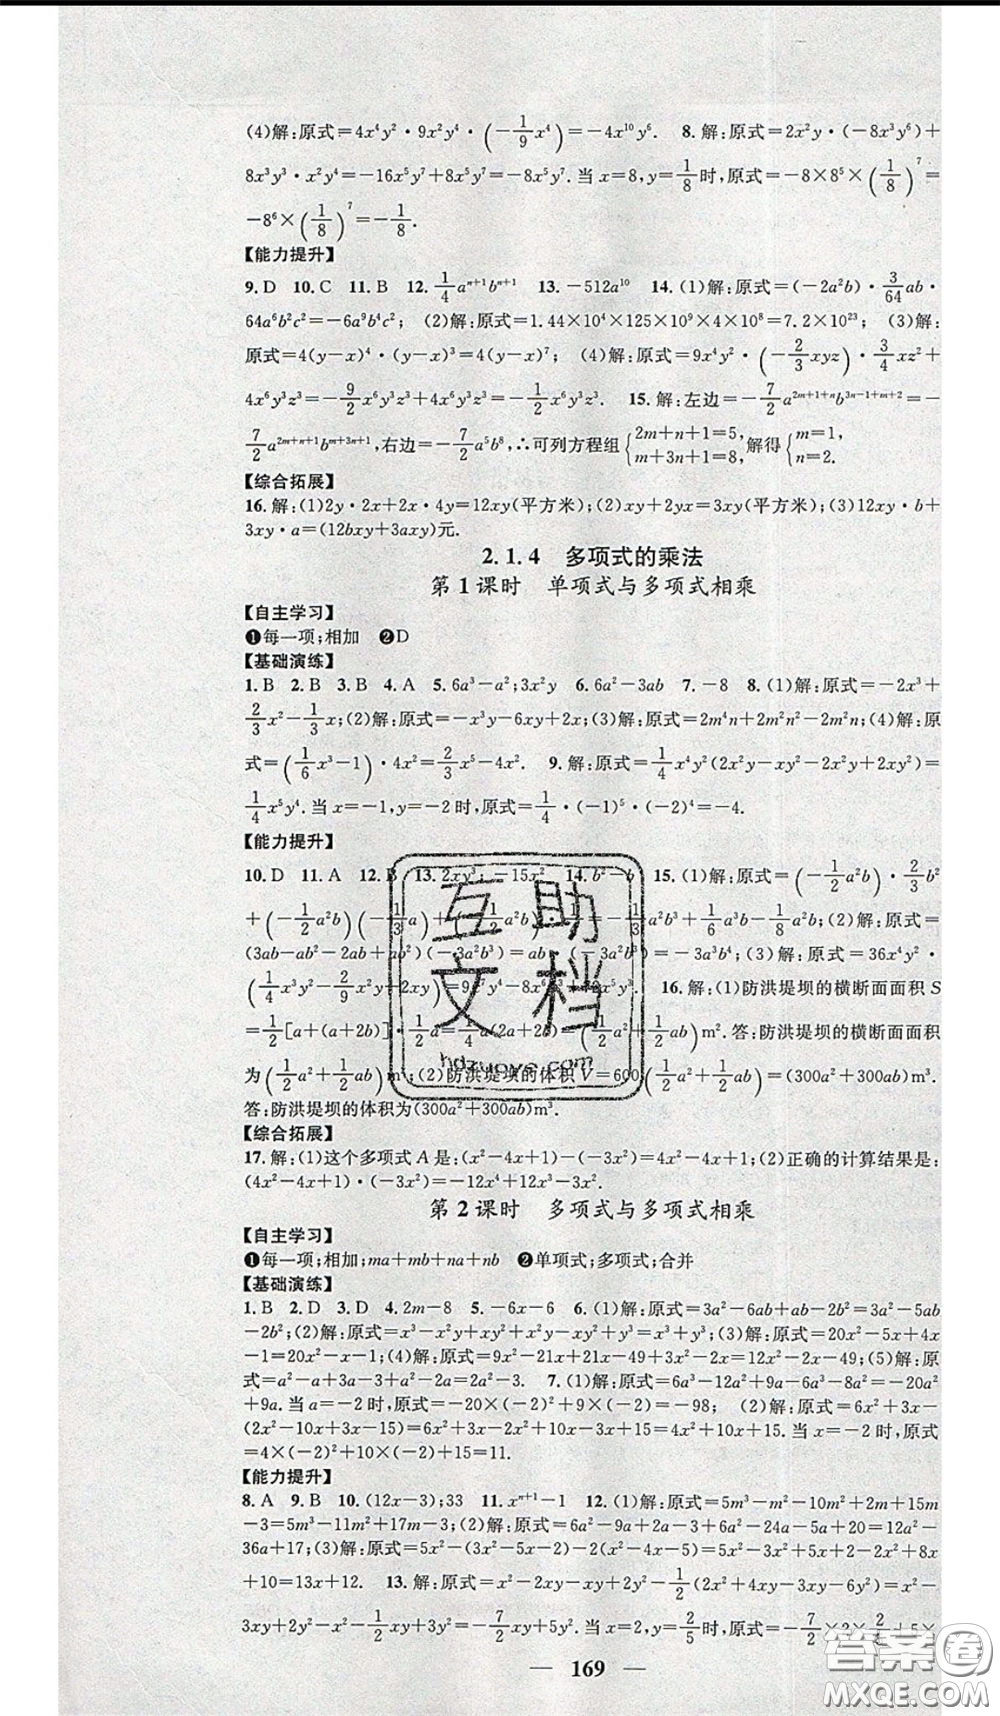 (4)解:原式=4x⁴y²·9x²y⁴·(-1/9x⁴)=-4x¹⁰y⁶. 8.解:原式=2x²y·(-8x³y⁶)+
8x³y³·x²y⁴=-16x⁵y⁷+8x⁵y⁷=-8x⁵y⁷.当x=8,y=1/8时,原式=-8×8⁵×(1/8)⁷=
-8⁶×(1/8)⁷=-1/8.
【能力提升】
9.D 10.C 11.B 12.1/4aⁿ⁺¹bⁿ⁺¹ 13.-512a¹⁰ 14.(1)解:原式=(-2a²b)·3/64ab·
64a⁶b²c²=-6a⁹b⁴c²; (2)解:原式=1.44×10⁴×125×10⁹×4×10⁸=7.2×10²³; (3)解:
原式=4(y-x)⁴·(y-x)³=4(y-x)⁷; (4)解:原式=9x⁴y²·(-2/3xyz)·3/4xz²+
4x⁶y³z³=-9/2x⁶y³z³+4x⁶y³z³=-1/2x⁶y³z³. 15.解:左边=-7/2a²ᵐ⁺¹⁺ⁿb³ⁿ⁻¹⁺ᵐ⁺²=-
7/2a²ᵐ⁺ⁿ⁺¹bᵐ⁺³ⁿ⁺¹,右边=-7/2a⁵b⁸,∴可列方程组{2m+n+1=5,m+3n+1=8,解得{m=1,n=2.
【综合拓展】
16.解:(1)2y·2x+2x·4y=12xy(平方米);(2)xy+2yx=3xy(平方米);(3)12xy·b+
3xy·a=(12bxy+3axy)元.
2.1.4 多项式的乘法
第1课时 单项式与多项式相乘
【自主学习】
❶每一项;相加 ❷D
【基础演练】
1.B 2.B 3.B 4.A 5.6a³-a²;3x²y 6.6a²-3ab 7.-8 8.(1)解:原式=-2x³+
2/3x²-1/3x;(2)解:原式=-x³y-6xy+2x;(3)解:原式=2m⁴n+2m²n²-2m²n;(4)解:原
式=(1/6x³-1)·4x²=2/3x⁵-4x². 9.解:原式=1/4x⁴y²(2x²y-xy²-2x²y+2xy²)=
1/4x⁵y⁴.当x=-1,y=-2时,原式=1/4·(-1)⁵·(-2)⁴=-4.
【能力提升】
10.D 11.A 12.B 13.2xy³;-15x² 14.b²-b 15.(1)解:原式=(-1/2a²b)·2/3b²
+(-1/2a²b)(-1/3a)+(-1/2a²b)·=-1/3a²b³+1/6a³b-1/8a²b;(2)解:原式=
(3ab-ab²-2ab+ab²)(-3a²b²)=ab·(-3a²b²)=-3a³b³;(3)解:原式=36x⁴y²·
(1/4x³y²-2/9x²y+2xy)=9x⁷y⁴-8x⁶y³x⁵y³. 16.解:(1)防洪堤坝的横断面面积S
=1/2[a+(a+2b)]·1/2a=1/4a(2a+2b)=(1/2a²+1/2ab)m².答:防洪堤坝的横断面面积
为(1/2a²+1/2ab)m²;(2)防洪堤坝的体积V=600(1/2a²+1/2ab)=(300a²+300ab)m³.
答:防洪堤坝的体积为(300a²+300ab)m³.
【综合拓展】
17.解:(1)这个多项式A是:(x²-4x+1)-(-3x²)=4x²-4x+1;(2)正确的计算结果是:
(4x²-4x+1)·(-3x²)=-12x⁴+12x³-3x².
第2课时 多项式与多项式相乘
【自主学习】
❶每一项;相加;ma+mb+na+nb ❷单项式;多项式;合并
【基础演练】
1.B 2.D 3.D 4.2m-8 5.-6x-6 6.(1)解:原式=3a²-6ab+ab-2b²=3a²-5ab
-2b²;(2)解:原式=x³-x²y+xy²+x²y-xy²+y³=x³+y³;(3)解:原式=20x²-5x+4x
-1=20x²-x-1;(4)解:原式=9x²-21x+21x-49-7x²-2x=2x²-2x-49;(5)解:原
式=a²-a-3a+3-a²+2a=2a²-3. 7.(1)解:原式=6a³-12a²+9a-6a³-8a²=-20a²
+9a.当a=-2时,原式=-20×(-2)²+9×(-2)=-98; (2)解:原式=6x²+3x-
(2x²-10x+3x-15)=6x²+3x-2x²+10x-3x+15=4x²+10x+15.当x=-2时,原式
=4×(-2)²+10×(-2)+15=11.
【能力提升】
8.A 9.B 10.(12x-3);33 11.xⁿ⁺¹-1 12.(1)解:原式=5m³-m²-10m²+2m+15m
-3=5m³-11m²+17m-3; (2)原式=6a²-9a+2a-3-6a²-24a-5a+20=-12a²-
36a+17;(3)解:原式=5x²-(3x²-5x-2)-2(x²-4x-5)=5x²-3x²+5x+2-2x²+8x
+10=13x+12. 13.解:原式=x²-2xy-xy+2y²-1/2(2x²-4xy+3xy-6y²)=x²-
3xy+2y²-x²-1/2xy+3y²=-7/2xy+5y².当x=2,y=2/5时,原式=-7/2×2×2/5+5×
169
互助
文档
hdzuoye.com
答案圈
MXQE.COM